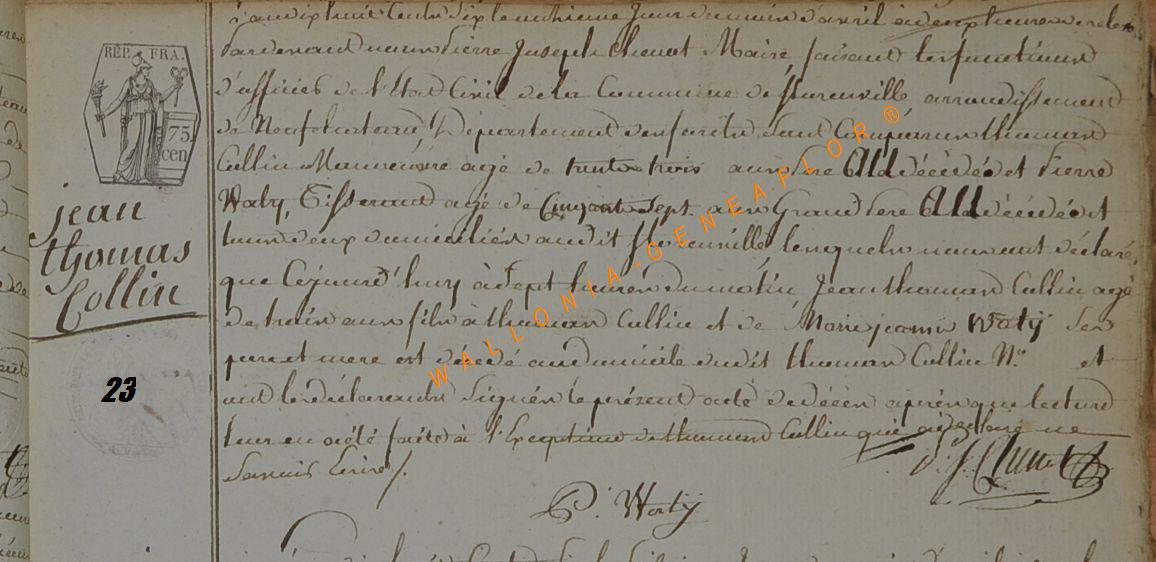 REP. FRA.
75
cen
jean
thomas
Collin
23
dix huit cent dix le neuvieme jour du mois d'avril à deux heures
Pardevant nous Pierre Joseph Chenot Maire, faisant les fonctions
d'officiés de l'Etat Civil de la Commune de arrondissement
de Neufchateau Département de sont Comparus thomas
Collin Manoeuvre agé de trente trois ans Pere du décédée et Pierre
Waty, Tisserand agé de Cinquante Sept ans Grand Pere du décédée et
tous deux domiciliés audit lesquels nous ont déclaré,
que Cejourd'huy à Sept heures du matin Jean thomas Collin agé
de trois ans fils à thomas Collin et de Marie jeanne Watÿ Ses
pere et mere est décédé au domicile dudit thomas Collin N° et
ont les déclarants Signés le présent acte de décès après que lecture
leur en a été faite à l'Exception de thomas Collin qui a déclaré ne
Savoir Ecrire /.
P. J. Chenot
P. Watÿ
WALLONIA-GENEAFLOR ®